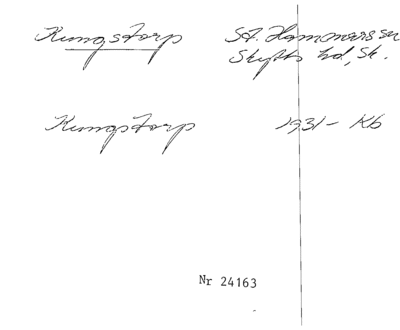 Kungstorp St. Hammars sn
Skytts hd, Sk.
Kungstorp 1931- Kb
Nr 24163